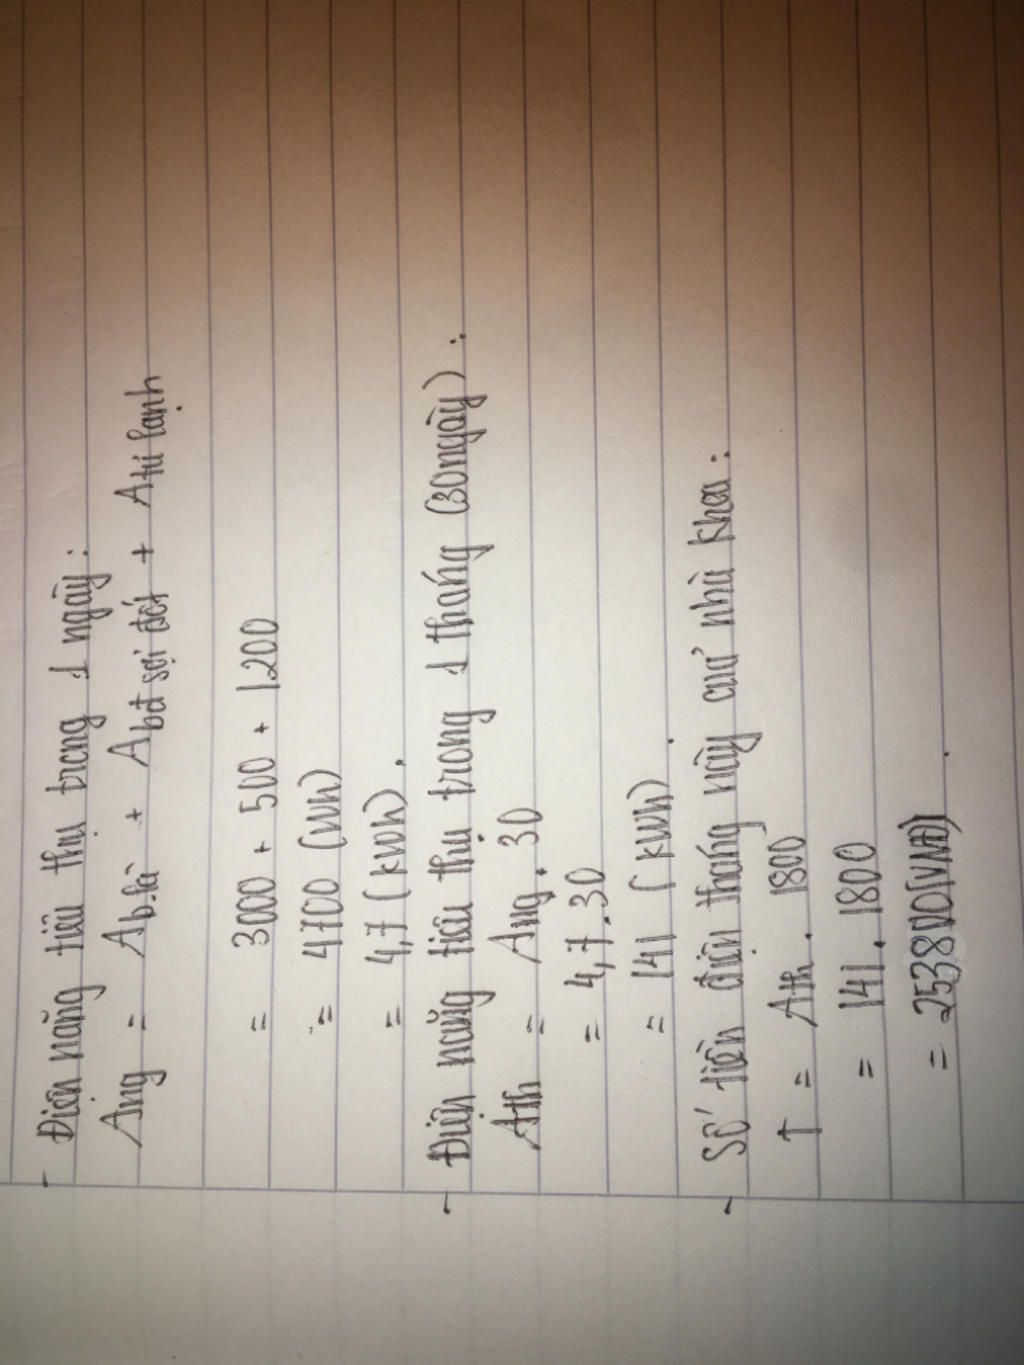 - Điện năng tiêu thụ trong 1 ngày:
Ang = Ab.là + Abđ sợi đốt + Atủ lạnh
= 3000 + 500 + 1200
= 4700 (Wh)
= 4,7 (kWh).
- Điện năng tiêu thụ trong 1 tháng (30ngày):
Ath = Ang. 30
= 4,7.30
= 141 (kWh).
- Số tiền điện tháng này của nhà khoa:
T = Ath. 1800
= 141. 1800
= 253800(VNĐ).